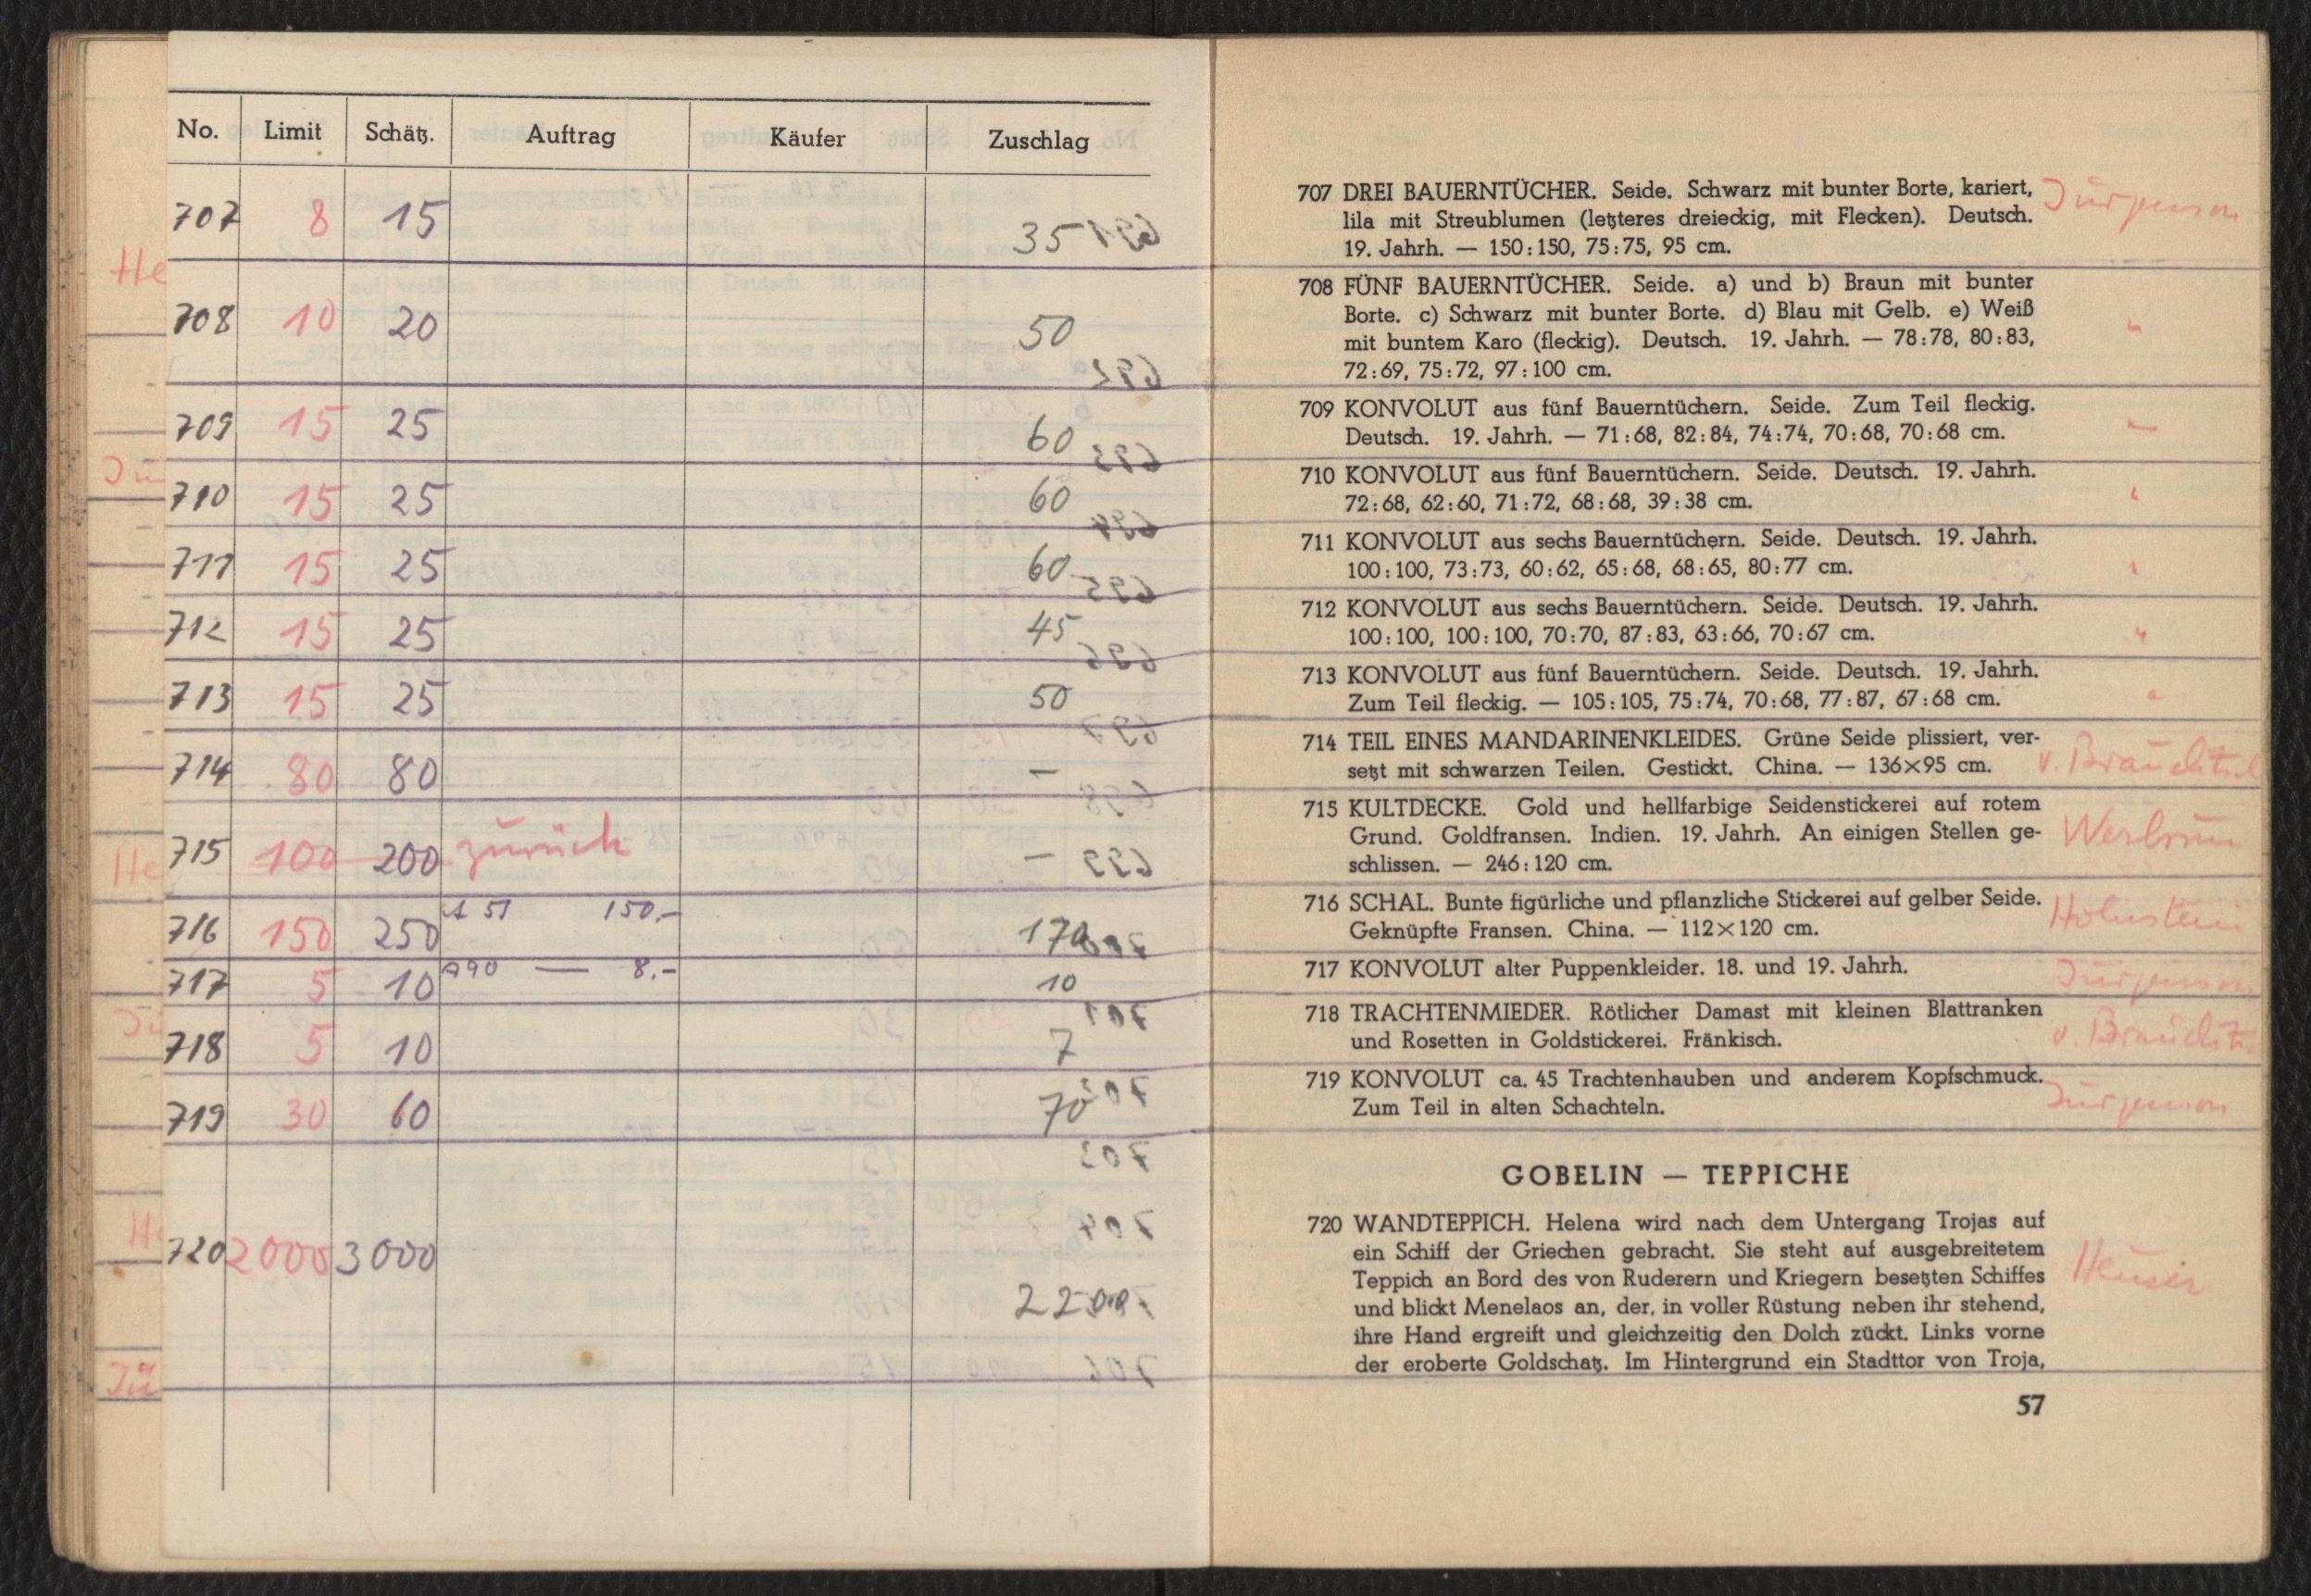 No. Limit Schätz. Auftrag Käufer Zuschlag
707 8 15 35
He
708 10 20 50
709 15 25 60
710 15 25 60
711 15 25 60
712 15 25 45
713 15 25 50
714 80 80 —
He
715 100 200 zurück —
716 150 250 51 150,- 170
717 5 10 990 — 8,- 10
718 5 10 7
719 30 60 70
He
720 2000 3000 2200.
Jü
707 DREI BAUERNTÜCHER. Seide. Schwarz mit bunter Borte, kariert, Jürgenson
lila mit Streublumen (letzteres dreieckig, mit Flecken). Deutsch.
19. Jahrh. — 150:150, 75:75, 95 cm.
708 FÜNF BAUERNTÜCHER. Seide. a) und b) Braun mit bunter
Borte. c) Schwarz mit bunter Borte. d) Blau mit Gelb. e) Weiß "
mit buntem Karo (fleckig). Deutsch. 19. Jahrh. — 78:78, 80:83,
72:69, 75:72, 97:100 cm.
709 KONVOLUT aus fünf Bauerntüchern. Seide. Zum Teil fleckig.
Deutsch. 19. Jahrh. — 71:68, 82:84, 74:74, 70:68, 70:68 cm. "
710 KONVOLUT aus fünf Bauerntüchern. Seide. Deutsch. 19. Jahrh.
72:68, 62:60, 71:72, 68:68, 39:38 cm. "
711 KONVOLUT aus sechs Bauerntüchern. Seide. Deutsch. 19. Jahrh.
100:100, 73:73, 60:62, 65:68, 68:65, 80:77 cm. "
712 KONVOLUT aus sechs Bauerntüchern. Seide. Deutsch. 19. Jahrh.
100:100, 100:100, 70:70, 87:83, 63:66, 70:67 cm. "
713 KONVOLUT aus fünf Bauerntüchern. Seide. Deutsch. 19. Jahrh.
Zum Teil fleckig. — 105:105, 75:74, 70:68, 77:87, 67:68 cm. "
714 TEIL EINES MANDARINENKLEIDES. Grüne Seide plissiert, ver-
setzt mit schwarzen Teilen. Gestickt. China. — 136×95 cm. v. Brauchitsch
715 KULTDECKE. Gold und hellfarbige Seidenstickerei auf rotem
Grund. Goldfransen. Indien. 19. Jahrh. An einigen Stellen ge-
schlissen. — 246:120 cm.
716 SCHAL. Bunte figürliche und pflanzliche Stickerei auf gelber Seide. Holnstein
Geknüpfte Fransen. China. — 112×120 cm.
717 KONVOLUT alter Puppenkleider. 18. und 19. Jahrh. Jürgenson
718 TRACHTENMIEDER. Rötlicher Damast mit kleinen Blattranken
und Rosetten in Goldstickerei. Fränkisch. v. Brauchitsch
719 KONVOLUT ca. 45 Trachtenhauben und anderem Kopfschmuck.
Zum Teil in alten Schachteln. Jürgenson
GOBELIN — TEPPICHE
720 WANDTEPPICH. Helena wird nach dem Untergang Trojas auf
ein Schiff der Griechen gebracht. Sie steht auf ausgebreitetem
Teppich an Bord des von Ruderern und Kriegern besetzten Schiffes Heuser
und blickt Menelaos an, der, in voller Rüstung neben ihr stehend,
ihre Hand ergreift und gleichzeitig den Dolch zückt. Links vorne
der eroberte Goldschatz. Im Hintergrund ein Stadttor von Troja,
57